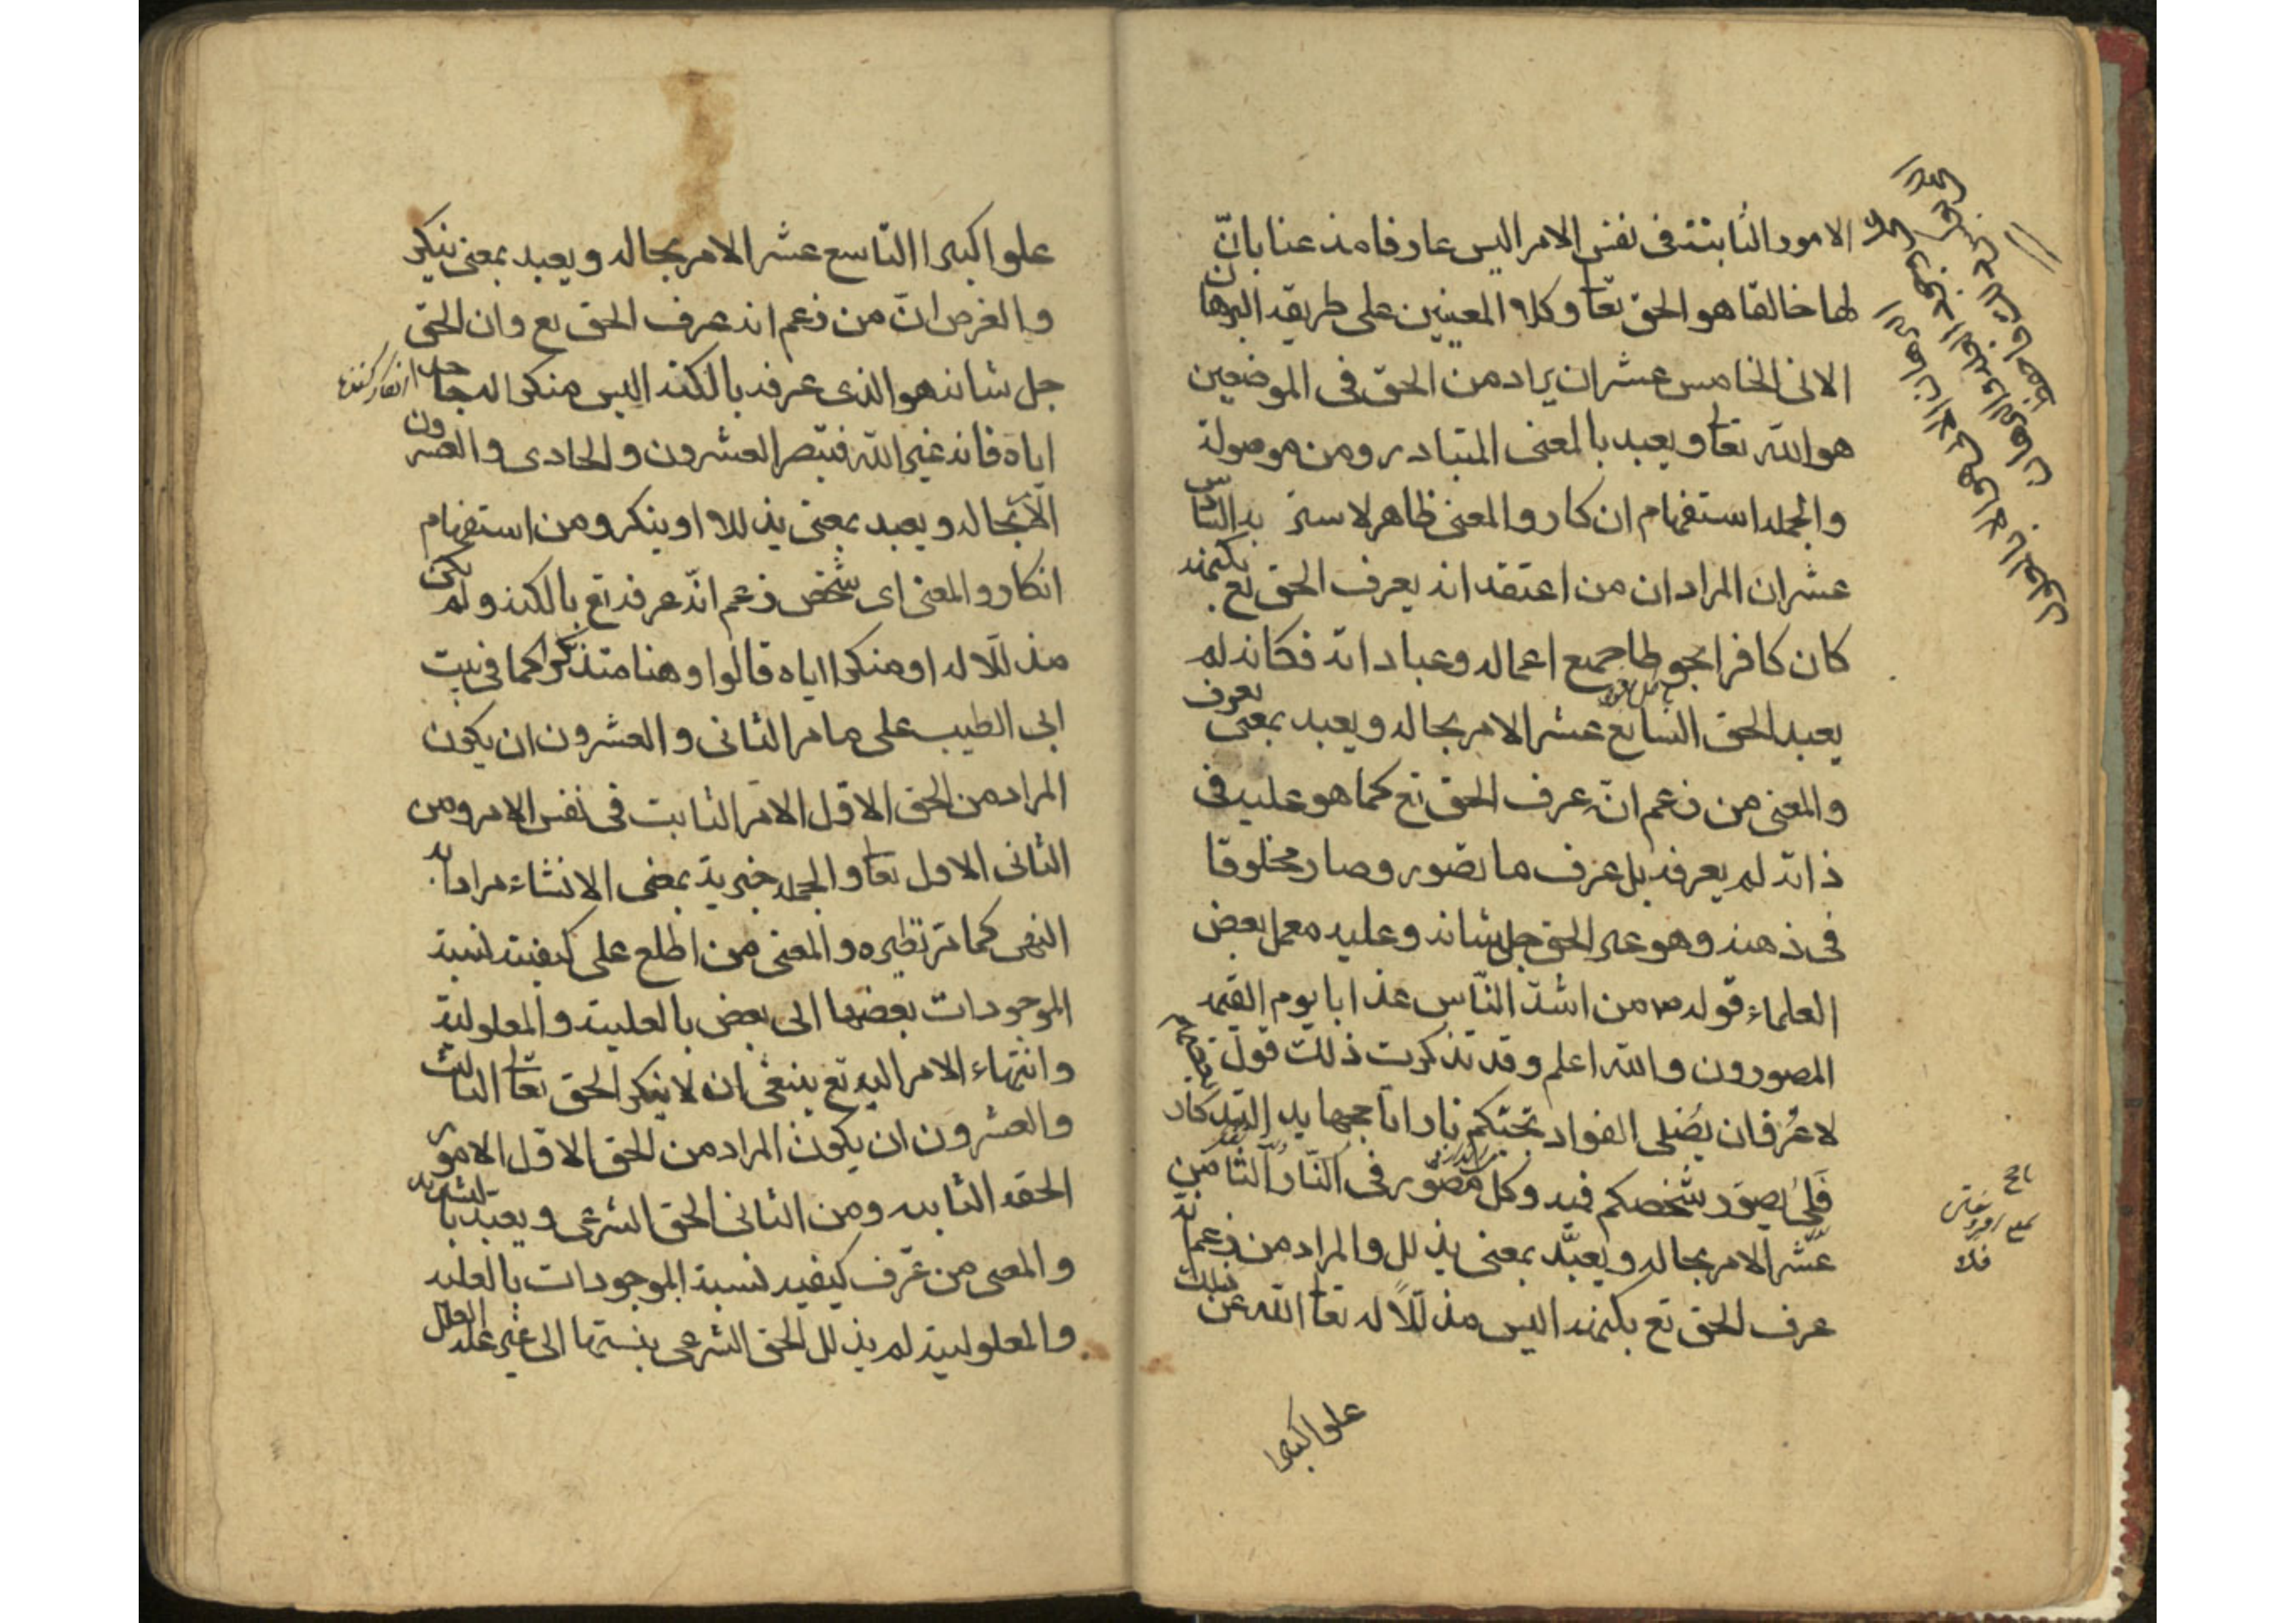 الامور الثابتة فى نفس الامر اليس عارفا مذعنا بانّ
لها خالقا هو الحق تعا وكلا المعنيين على طريقه البرهان
الانى الخامس عشر ان يراد من الحق فى الموضعين
هو الله تعا ويعبد بالمعنى المتبادر ومن موصولة
والجمله استفهام انكار والمعنى ظاهر لا سترة به السادس
عشر ان المراد ان من اعتقد انه يعرف الحق تع بكنهه
كان كافرا محبوطا جميع اعماله وعباداته فكانه لم
يعبد الحق السابع عشر الامر بحاله ويعبد بمعنى يعرف
والمعنى من زعم انه عرف الحق تع كما هو عليه فى
ذاته لم يعرفه بل عرف ما تصور وصار مخلوقا
فى ذهنه وهو غير الحق جل شانه وعليه معمل بعض
العلماء قوله ص من اشدّ النّاس عذابا يوم القيمه
المصورون والله اعلم وقد تذكرت ذلك قول
لا عُرفان يصلى الفواد بحبّكم نارا تاججها يد التذكار
فلِئ يصوّر شخصكم فيه وكل مصوّر فى النّار الثامن
عشر الامر بحاله ويعبّد بمعنى يذلل والمراد من زعم انه
عرف الحق تع بكنهه اليس مذلّلاً له تعا الله عن ذلك
علوا كبيرا
علوا كبيرا التاسع عشر الامر بحاله ويعبد بمعنى ينكر
والغرض انّ من زعم انه عرف الحق تع وان الحق
جل شانه هو الذى عرفه بالكنه اليس منكرا له جاحدا
اياه فانه غير الله فتبصر العشرون والحادى والعشرون
الامر بحاله ويعبد بمعنى يذلل او ينكر ومن استفهام
انكار والمعنى اى شخص زعم انّه عرفه تع بالكنه ولم يكن
مذللا له او منكرا اياه قالوا وهنا متذكرا كما فى بيت
ابى الطيب على ما مر الثانى والعشرون ان يكون
المراد من الحق الاول الامر الثابت فى نفس الامر ومن
الثانى الاول تعا والجمله خبرية بمعنى الانشاء مرادا به
النهى كما مر نظيره والمعنى من اطلع على كيفية نسبة
الموجودات بعضها الى بعض بالعلية والمعلولية
وانتهاء الامر اليه تع ينبغى ان لا ينكر الحق تعا الثالث
والعشرون ان يكون المراد من الحق الاول الامور
الحقه الثابته ومن الثانى الحق الشرعى ويعبد بالتشديد
والمعنى من عرف كيفيه نسبة الموجودات بالعليه
والمعلولية لم يذلل الحق الشرعى بنسبتها الى غير علة العلل